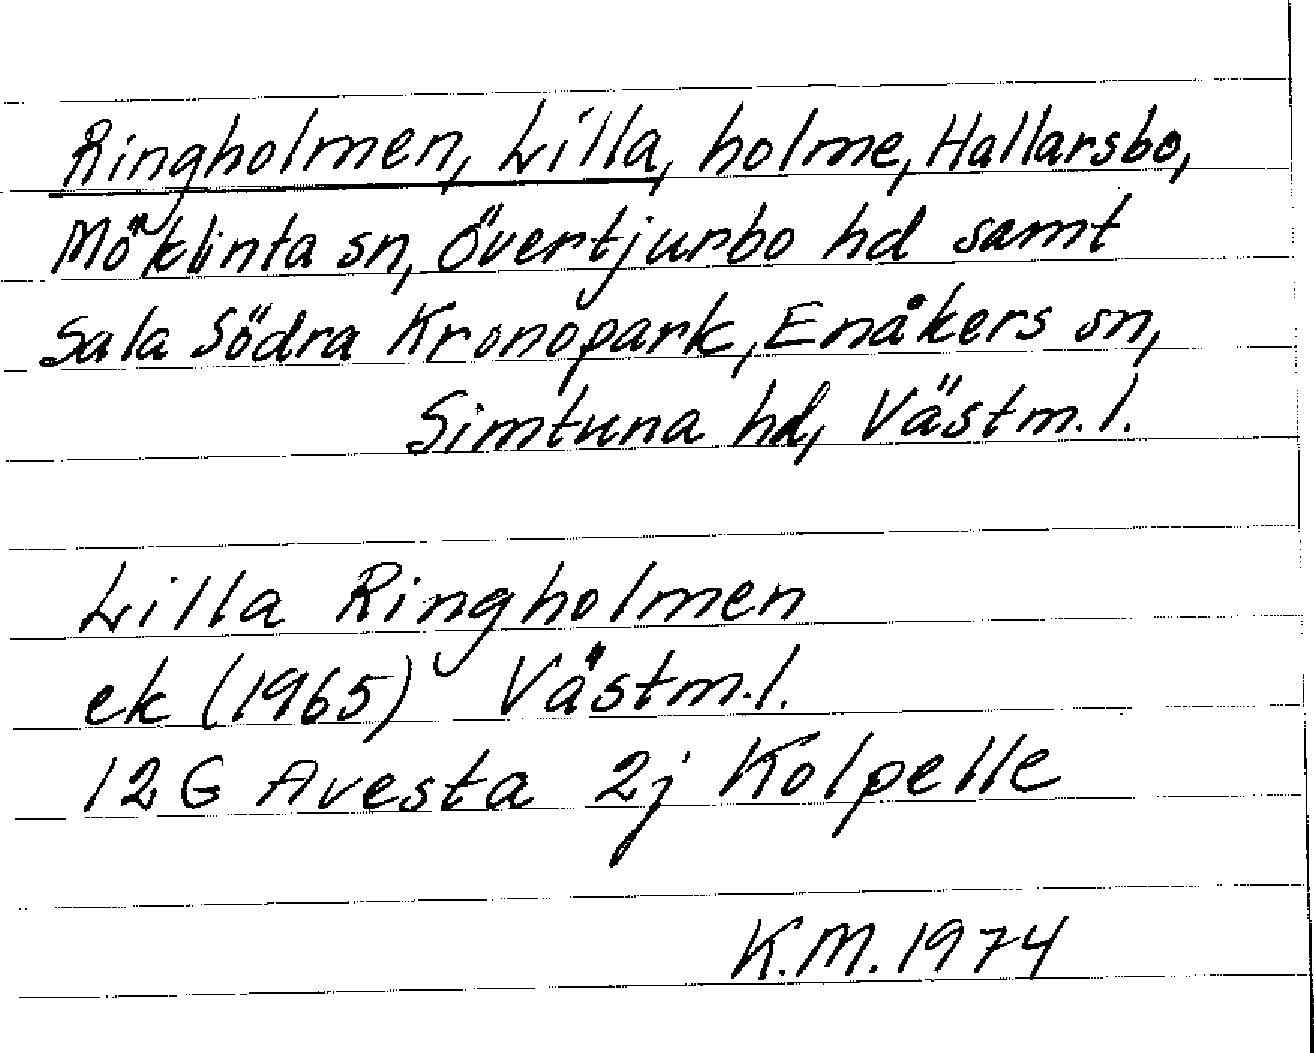 Ringholmen, Lilla, holme, Hallarsbo,
Möklinta sn, Övertjurbo hd samt
Sala Södra Kronopark, Enåkers sn,
Simtuna hd, Västm. l.
Lilla Ringholmen
ek (1965) Västm. l.
12 G Avesta 2j Kolpelle
K.M. 1974